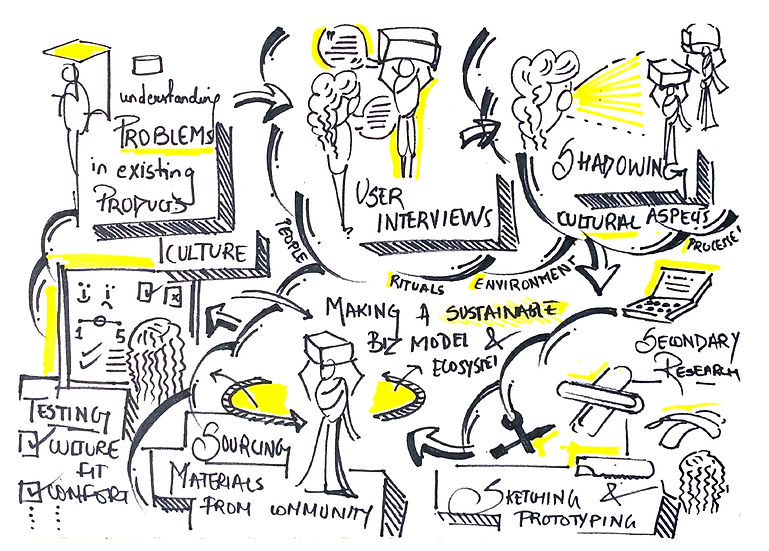 understanding
PROBLEMS
in existing
PRODUCTS
USER
INTERVIEWS
SHADOWING
CULTURAL ASPECTS
PEOPLE
RITUALS
ENVIRONMENT
PROCESE!
CULTURE
1 5
MAKING A SUSTAINABLE
BIZ MODEL &
ECOSYSTE!
SECONDARY
RESEARCH
TESTING
CULTURE
FIT
CONFORT
SOURCING
MATERIALS
FROM COMMUNITY
SKETCHING &
PROTOTYPING